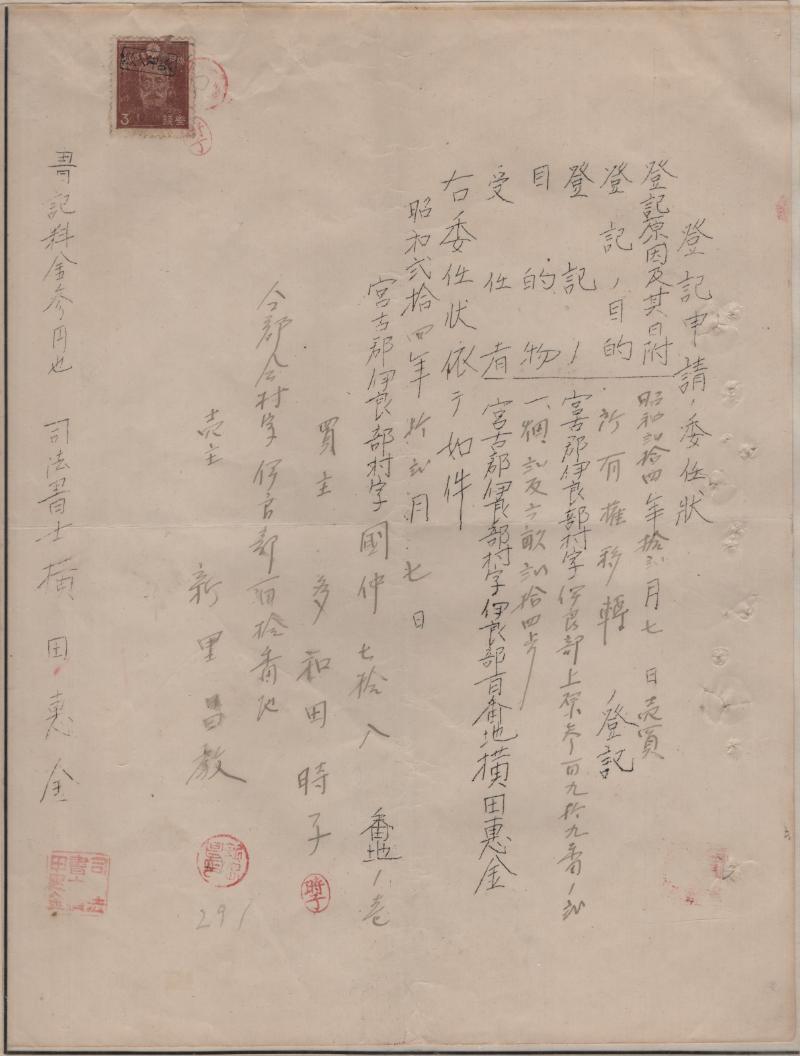 登記申請ノ委任状
登記原因及其日附 昭和弐拾四年拾弐月七日売買
登記ノ目的 所有権移轉ノ登記
登記ノ目的物 宮古郡伊良部村字伊良部上原参百九拾九番ノ弐
一、畑弐反六畝弐拾四歩
受任者 宮古郡伊良部村字伊良部百番地横田惠金
右委任状依テ如件
昭和弐拾四年拾弐月七日
宮古郡伊良部村字國仲七拾八番地ノ壱
買主 多和田時子
仝郡仝村字伊良部百拾番地
売主 新里昌教
291
書記料金参円也 司法書士横田惠金
3
時子
時子
司法書士横田惠金